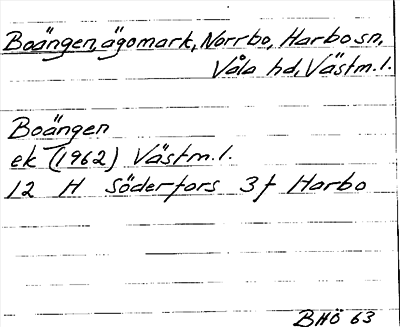 Boängen, ägomark, Norrbo, Harbo sn,
Våla hd, Västm. l.
Boängen
ek (1962) Västm. l.
12 H Söderfors 3f Harbo
BHÖ 63